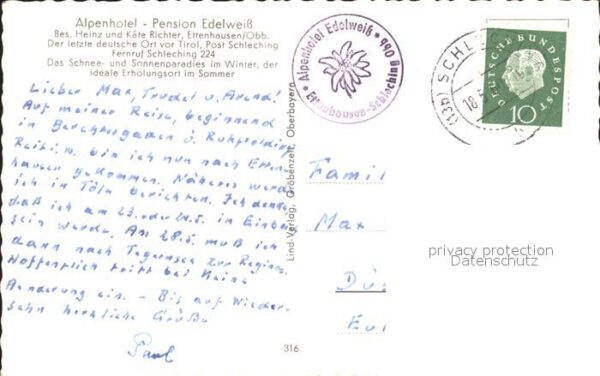 Alpenhotel - Pension Edelweiß
Bes. Heinz und Käte Richter, Ettenhausen/Obb.
Der letzte deutsche Ort vor Tirol, Post Schleching
Fernruf Schleching 224
Das Schnee- und Sonnenparadies im Winter, der
ideale Erholungsort im Sommer
Lieber Max, Trudel u. Arend!
Auf meiner Reise, beginnend
in Berchtesgaden u. Ruhpolding
bin ich nun nach Etten-
hausen gekommen. Näheres werde
ich in Tölz berichten. Ich denke
daß ich am 23. oder 24.5. in
sein werde. Am 28.5. muß ich
dann nach Tegernsee zur
Hoffentlich tritt bei keine
Aenderung ein. - Bis auf Wieder-
sehn herzliche Grüße
Paul
Alpenhotel Edelweiß
Ettenhausen-Schleching Obb
Lind-Verlag, Gröbenzell, Oberbayern
316
(13b) SCHLE
18.5.
DEUTSCHE BUNDESPOST
10
Famil
Max
Dü
privacy protection
Datenschutz